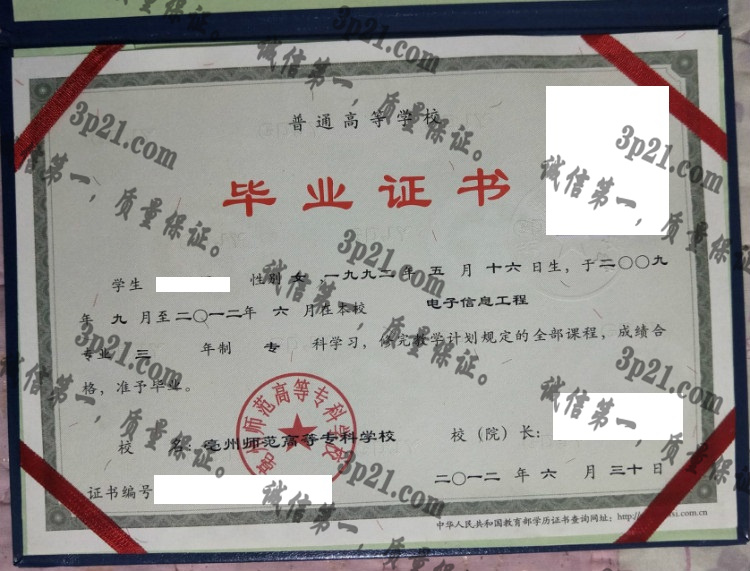 普通高等学校
毕业证书
学生 性别 女,一九九二年 五 月 十六日生,于二〇〇九
年 九 月至二〇一二年 六 月在本校 电子信息工程
专业 三 年制 专 科学习,修完教学计划规定的全部课程,成绩合
格,准予毕业。
校 名:亳州师范高等专科学校 校(院)长:
证书编号 二〇一二 年 六 月 三十日
中华人民共和国教育部学历证书查询网址:http://
亳州师范高等专科学校
3p21.com
诚信第一,质量保证。
3p21.com
诚信第一,质量保证。
3p21.com
诚信第一,质量保证。
3p21.com
诚信第一,质量保证。
3p21.com
诚信第一,质量保证。
3p21.com
诚信第一,质量保证。
诚信第一,质量保证。